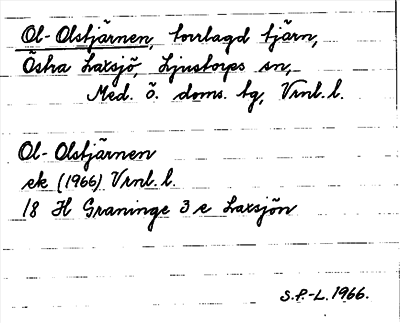 Ol-Olstjärnen, torrlagd tjärn,
Östra Laxsjö, Ljustorps sn,
Med. ö. doms. tg, Vrnl. l.
Ol-Olstjärnen
ek (1966) Vrnl. l.
18 H Graninge 3 e Laxsjön
S.P.-L. 1966.